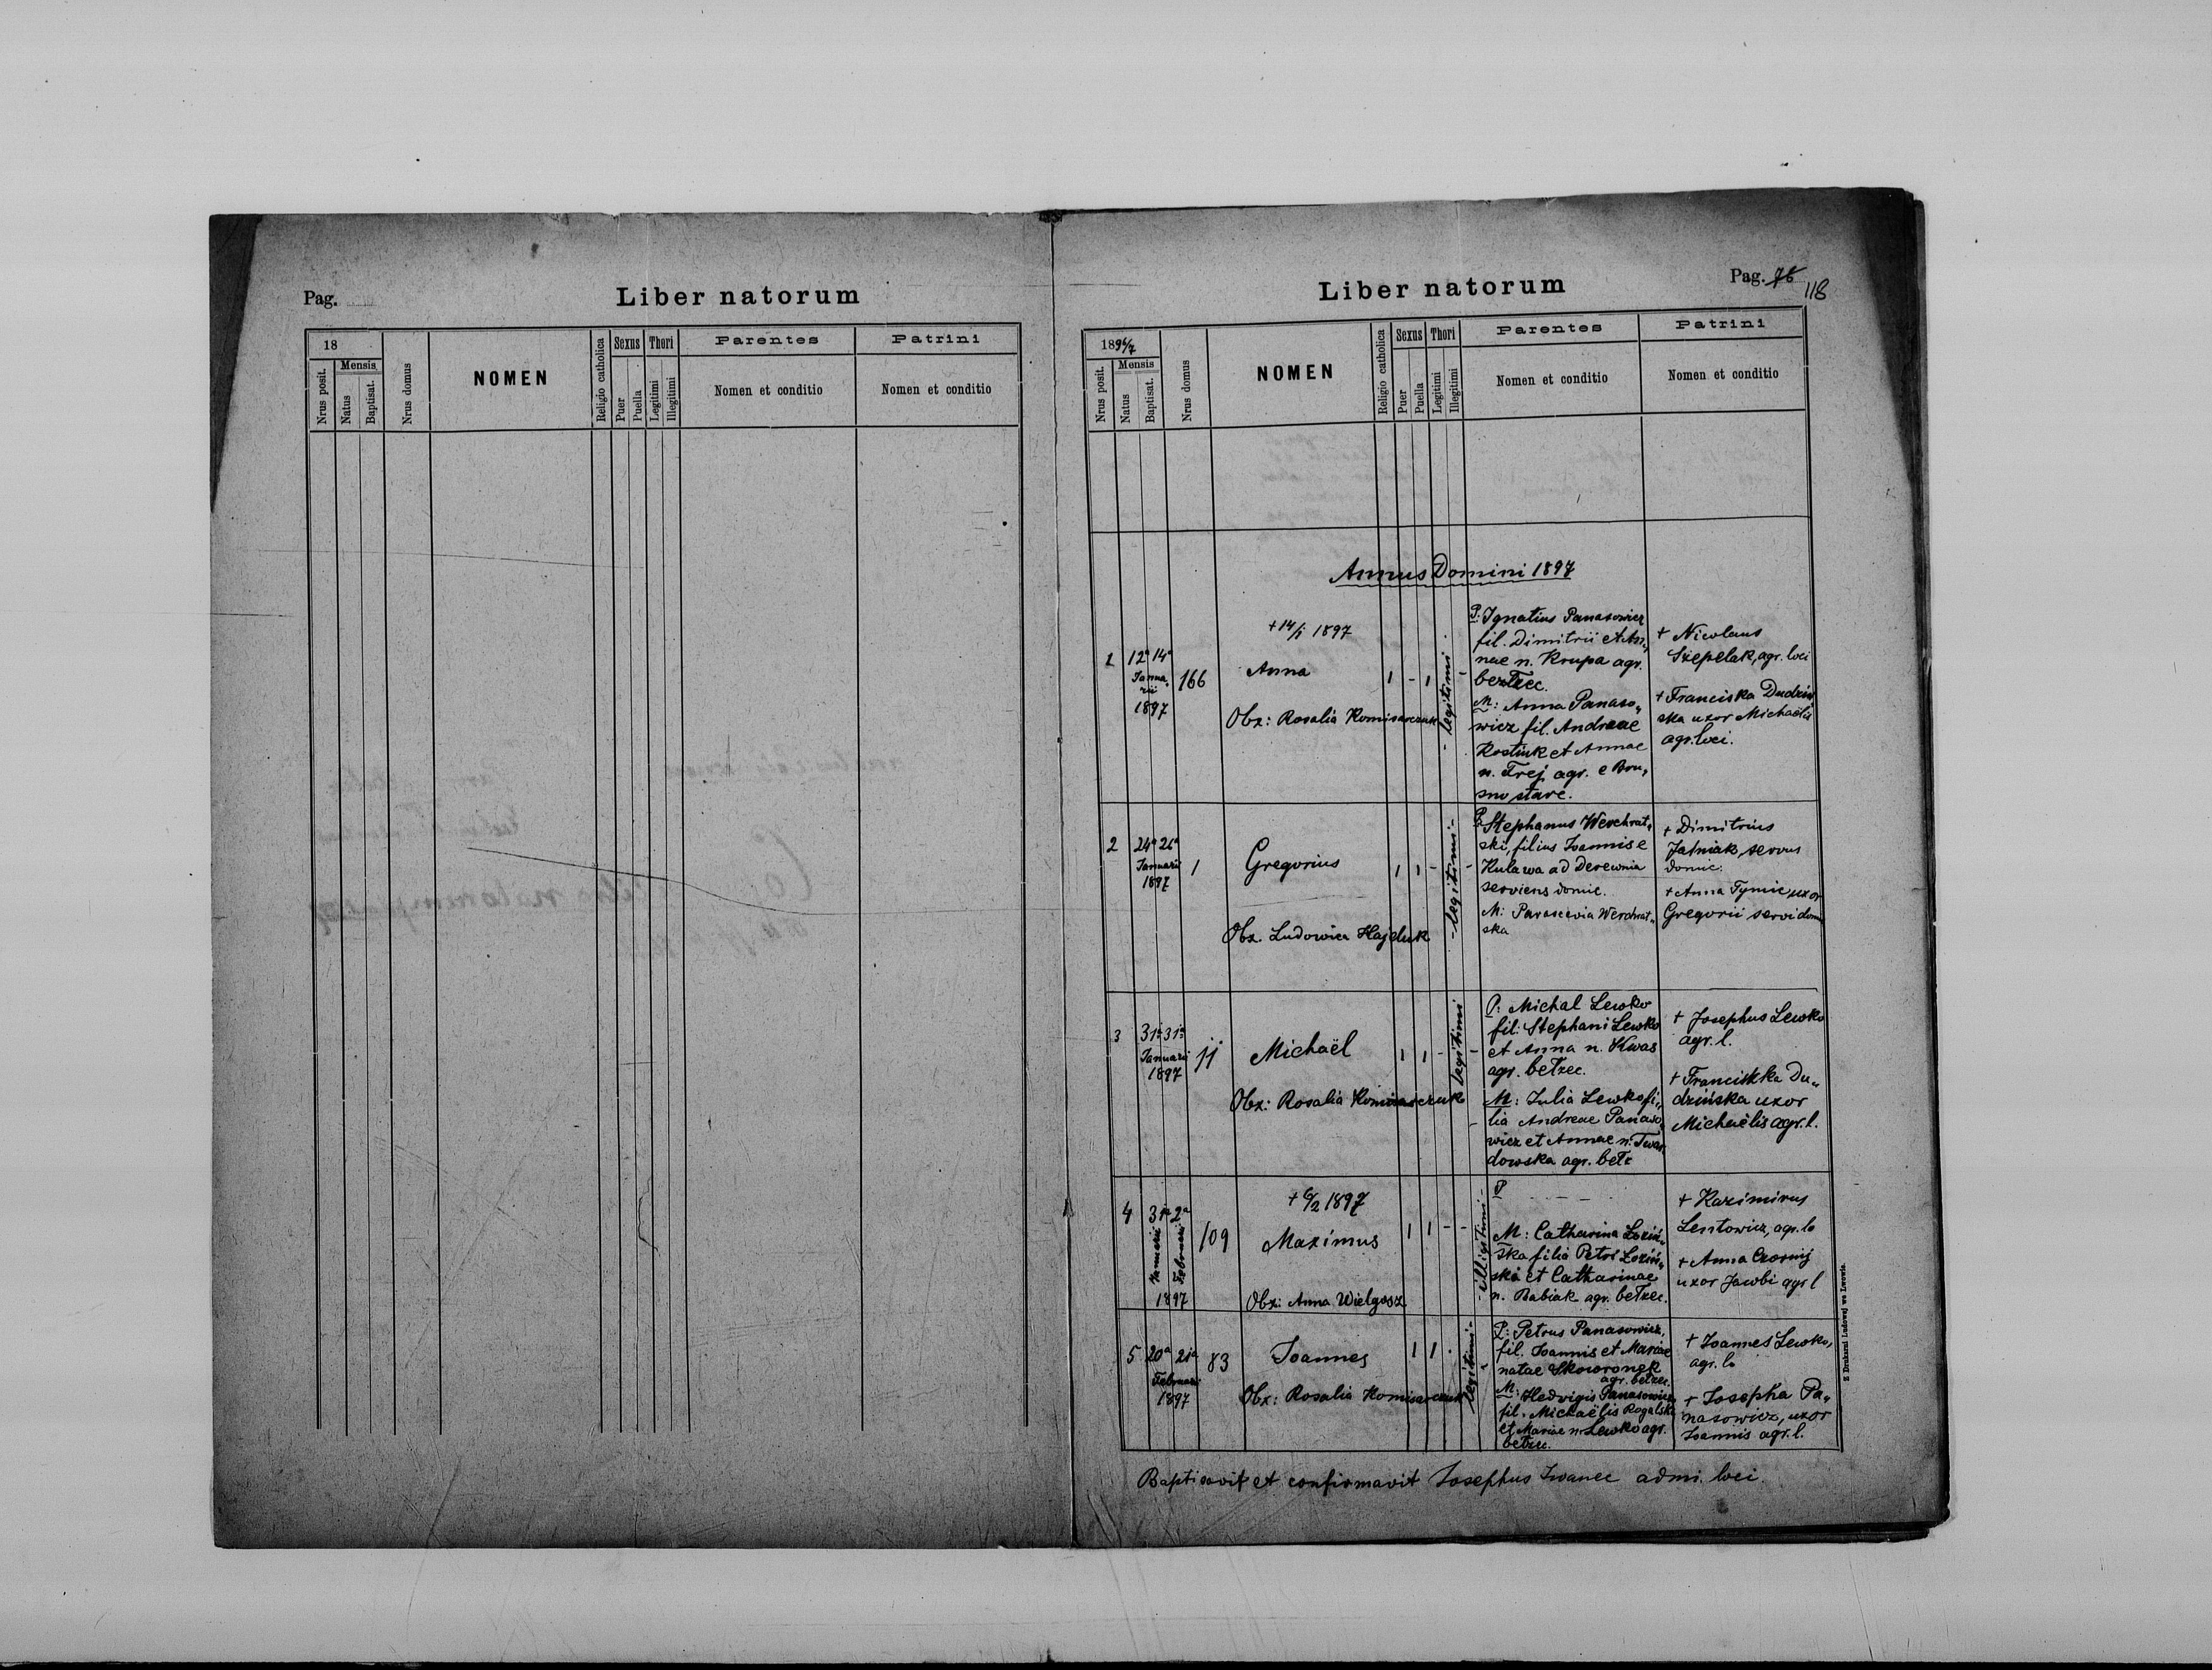 Pag.
Liber natorum
18
Mensis
Nrus posit.
Natus
Baptisat.
Nrus domus
NOMEN
Religio catholica
Sexus
Puer
Puella
Thori
Legitimi
Illegitimi
Parentes
Nomen et conditio
Patrini
Nomen et conditio
Liber natorum
Pag. 76
118
1896/7
Mensis
Nrus posit.
Natus
Baptisat.
Nrus domus
NOMEN
Religio catholica
Sexus
Puer
Puella
Thori
Legitimi
Illegitimi
Parentes
Nomen et conditio
Patrini
Nomen et conditio
Annus Domini 1897
1
12a 14a
Janua„
rii
1897
166
+ 14/1 1897
Anna
Obx: Rosalia Komisarczuk
1 - 1 -
- legitimi -
P: Ignatius Panasowicz
fil. Dimitrii et An„
nae n. Krupa agr.
bełzec.
M: Anna Panaso„
wicz fil. Andreae
Kostiuk et Annae
n. Frej agr. e Bru„
sno stare.
+ Nicolaus
Szepelak, agr. loci
+ Franciska Dudziń
ska uxor Michaëlis
agr. loci.
2
24a 26a
Januarii
1897
1
Gregorius
Obx. Ludowica Hajduk
1 1 - -
- legitimi -
P: Stephanus Werchrat„
ski, filius Joannis e
Kulawa ad Derewnia
serviens domic.
M: Parascevia Werchrat„
ska
+ Dimitrius
Jatniak, servus
domic.
+ Anna Tymic, uxor
Gregorii servi dom
3
31a 31a
Januarii
1897
11
Michaël
Obx: Rosalia Komisarczuk
1 1 - -
legitimi
P: Michal Lewko
fil: Stephani Lewko
et Anna n. Kwas
agr. bełzec.
M: Julia Lewko fi„
lia Andreae Panaso
wicz et Annae n. Twar
dowska agr. bełz
+ Josephus Lewko
agr. l.
+ Franciskka Du„
dzińska uxor
Michaëlis agr. l.
4
31a 2a
Januarii
Februarii
1897
109
+ 6/2 1897
Maximus
Obx: Anna Wielgosz
1 1 - -
- illigitimi -
P - - - -
M: Catharina Łoziń„
ska filia Petri Łoziń„
ski et Catharinae
n. Babiak agr. bełzec.
+ Kazimirus
Lentowicz, agr. lo
+ Anna Czornij
uxor Jacobi agr l
5
20a 21a
Februarii
1897
83
Joannes
Obx: Rosalia Komisarczuk
1 1 .
legitimi -
P: Petrus Panasowicz,
fil. Joannis et Mariae
natae Skowronek
agr. bełzec.
M: Hedvigis Panasowicz
fil. Michaëlis Rogalski
et Mariae n. Lewko agr.
bełzec.
+ Joannes Lewko,
agr. lo
+ Josepha Pa„
nasowicz, uxor
Joannis agr. l.
Z Drukarni Ludowej we Lwowie.
Baptisavit et confirmavit Josephus Iwanec admi. loci.